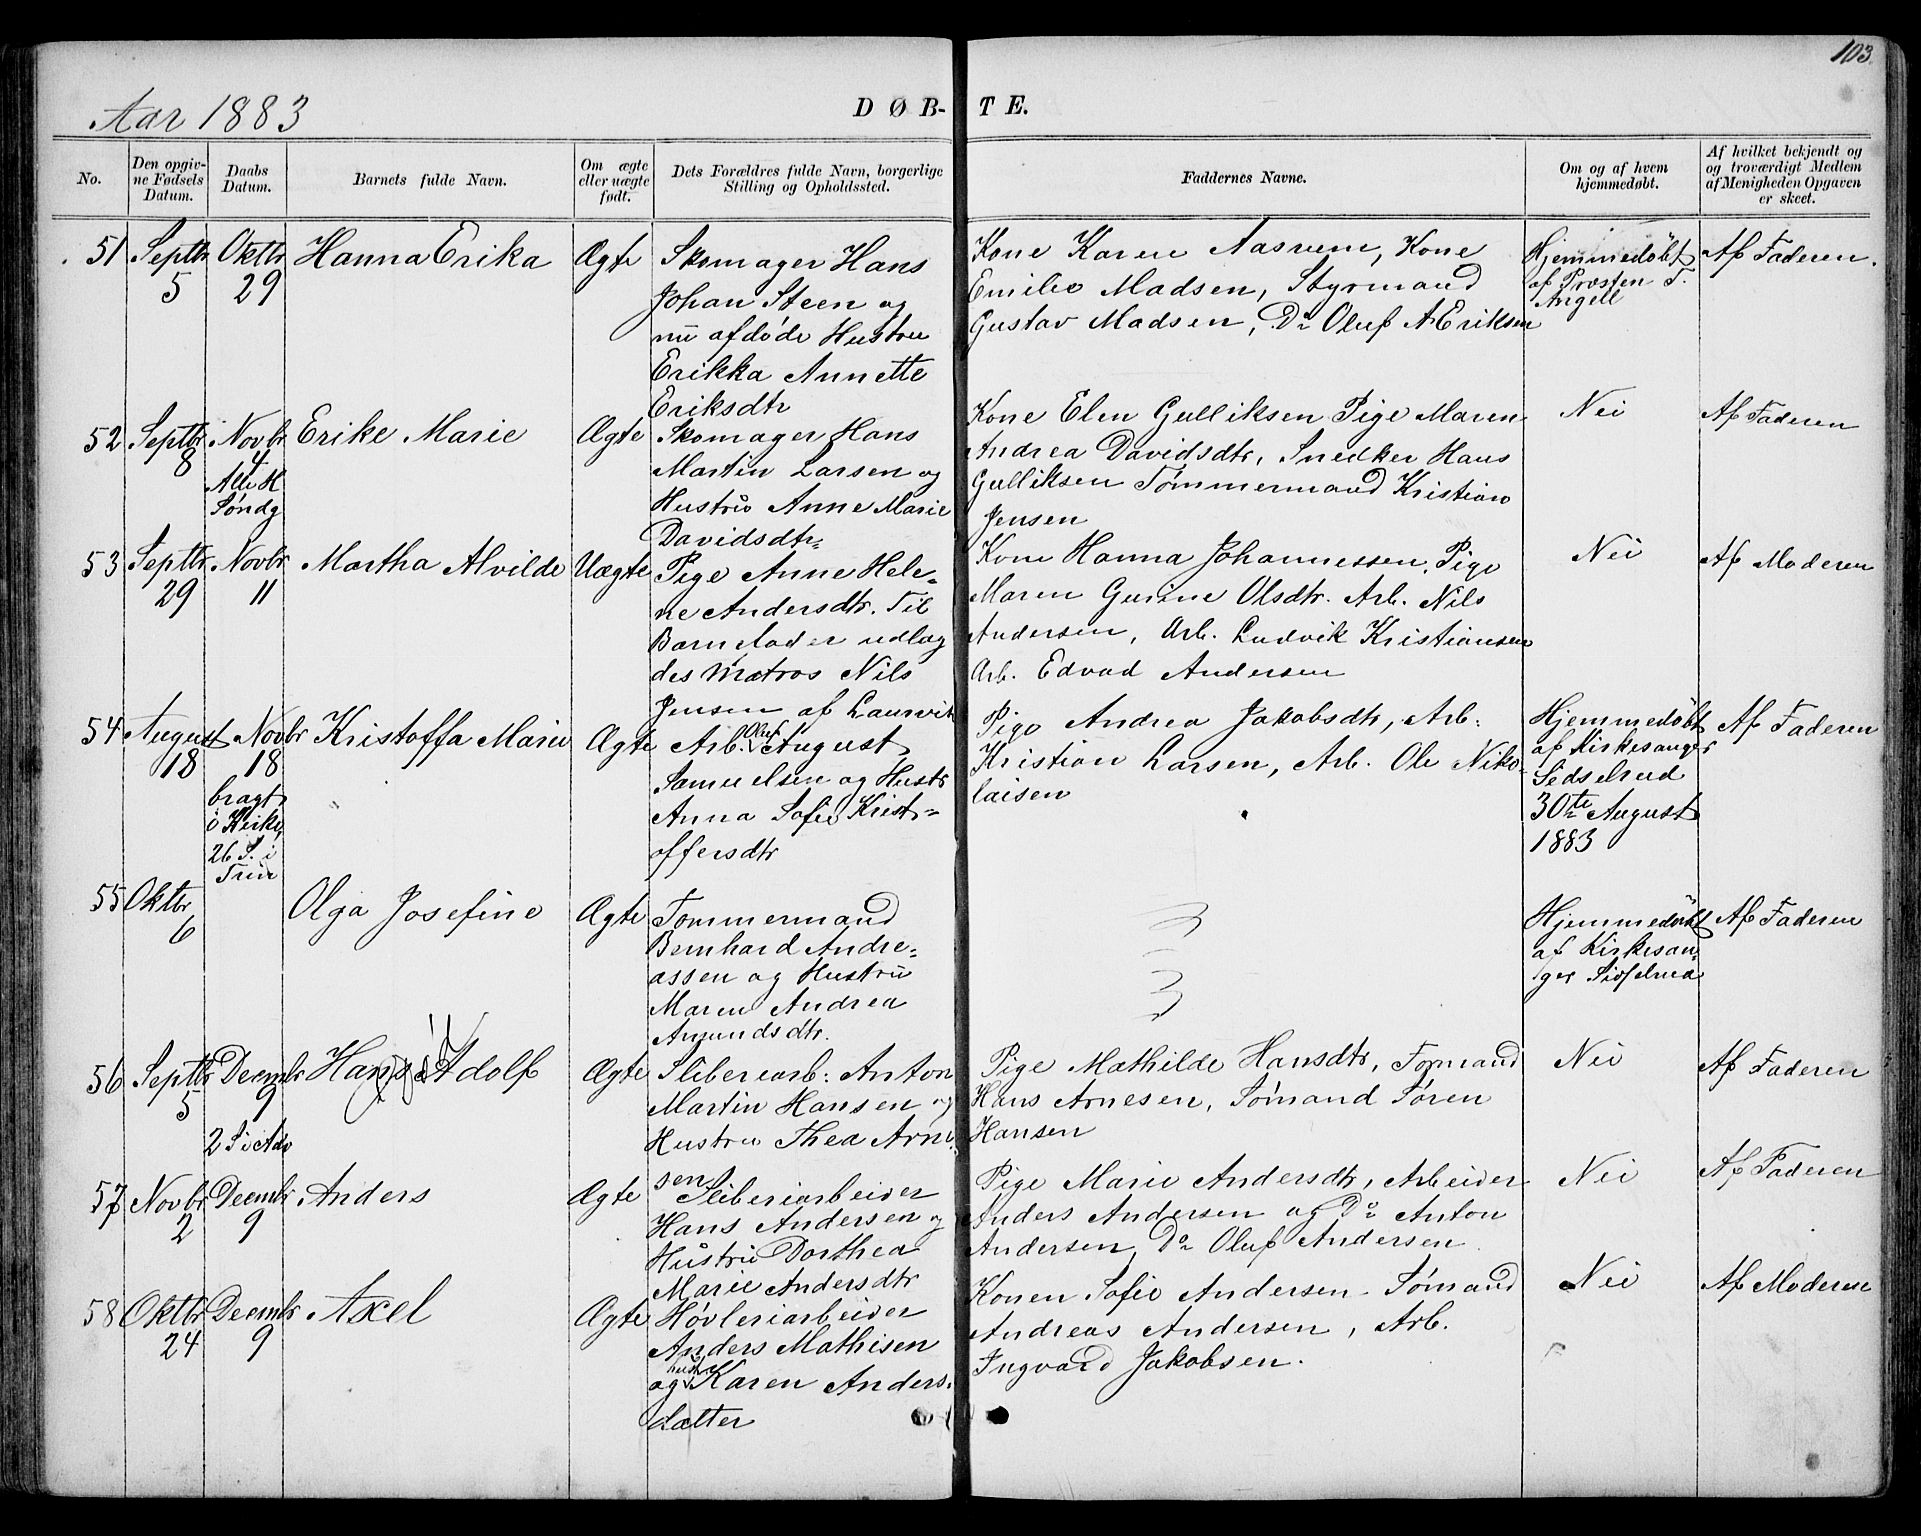 103.
Aar 1883
DØB-
TE.
No.
Den opgiv-
ne Fødsels
Datum.
Daabs
Datum.
Barnets fulde Navn.
Om ægte
eller uægte
født.
Dets Forældres fulde Navn, borgerlige
Stilling og Opholdssted.
Faddernes Navne.
Om og af hvem
hjemmedøbt.
Af hvilket bekjendt og
og troværdigt Medlem
af Menigheden Opgaven
er skeet.
51
Septbr
5
Oktbr
29
Hanna Erika
Ægte
Skomager Hans
Johan Steen og
nu afdøde Hustru
Erikka Annette
Eriksdtr
Kone Karen Aasrum, Kone
Emilie Madsen, Styrmand
Gustav Madsen, Do Oluf A Eriksen
Hjemmedøbt
af Præsten T.
Angell
Af Faderen.
52
Septbr
8
Novbr
4
Alle H
Søndg
Erike Marie
Ægte
Skomager Hans
Martin Larsen og
Hustru Anne Marie
Davidsdtr
Kone Elen Gulliksen Pige Maren
Andrea Davidsdtr, Snedker Hans
Gulliksen Tømmermand Kristian
Jensen
Nei
Af Faderen
53
Septbr
29
Novbr
11
Martha Alvilde
Uægte
Pige Anne Hele-
ne Andersdtr. Til
Barnefader udlag
des Matros Nils
Jensen af Laurvik
Kone Hanna Johannessen, Pige
Maren Gurine Olsdtr. Arb. Nils
Andersen, Arb. Ludvik Kristiansen
Arb. Edvad Andersen
Nei
Af Moderen
54
August
18
Novbr
18
bragt
i Kirke,
26 S. i
Trin
Kristoffa Marie
Ægte
Arb. Oluf August
Samuelsen og Hustr
Anna Sofie Krist-
offersdtr
Pige Andrea Jakobsdtr, Arb.
Kristian Larsen, Arb. Ole Niko-
laisen
Hjemmedøbt
af Kirkesanger
Sidselrud
30te August
1883
Af Faderen
55
Oktbr
6
Olga Josefine
Ægte
Tømmermand
Bernhard Andre-
assen og Hustru
Maren Andrea
Amundsdtr.
Hjemmedøbt
af Kirkesan-
ger Sidselrud
Af Faderen
56
Septbr
5
Decmbr
9
2 S i Adv
Hans Adolf
Ægte
Sliberiarb: Anton
Martin Hansen og
Hustru Thea Arne-
sen
Pige Mathilde Hansdtr, Formand
Hans Arnesen, Sømand Søren
Hansen
Nei
Af Faderen
57
Novbr
2
Decmbr
9
Anders
Ægte
Sliberiarbeider
Hans Andersen og
Hustru Dorthea
Marie Andersdtr
Pige Marie Andersdtr, Arbeider
Anders Andersen og Do Anton
Andersen, Do Oluf Andersen
Nei
Af Faderen
58
Oktbr
24
Decmbr
9
Axel
Ægte
Høvleriarbeider
Anders Mathisen
og hustr Karen Anders-
datter
Konen Sofie Andersen, Sømand
Andreas Andersen, Arb.
Ingvard Jakobsen.
Nei
Af Moderen